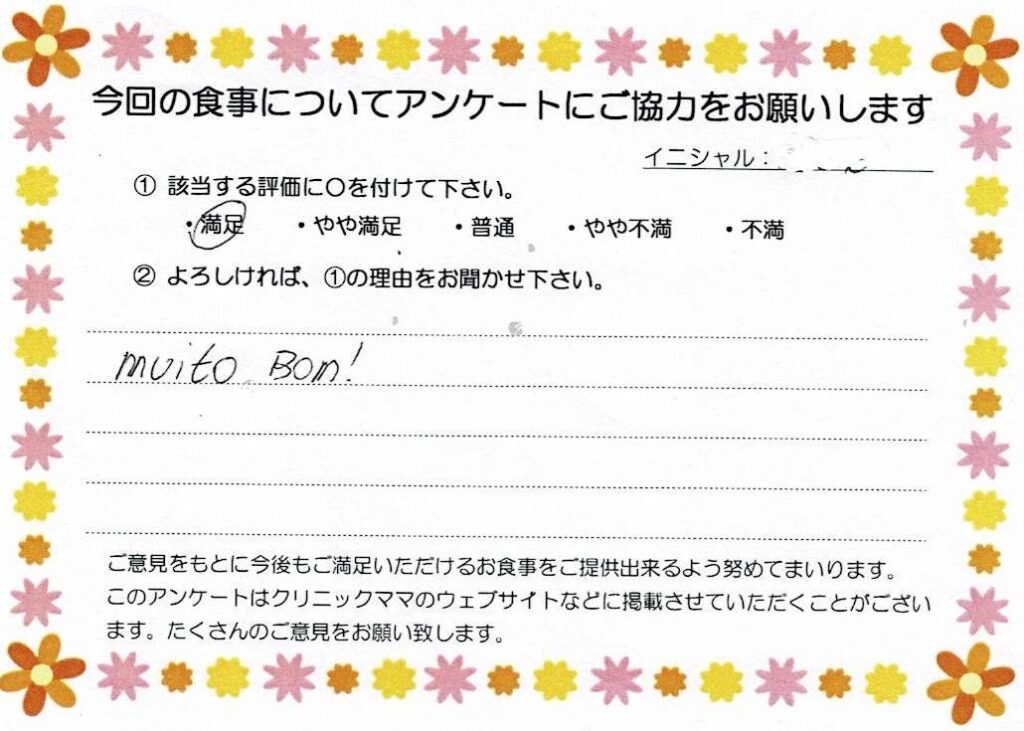 今回の食事についてアンケートにご協力をお願いします
イニシャル：
① 該当する評価に〇を付けて下さい。
・満足 ・やや満足 ・普通 ・やや不満 ・不満
② よろしければ、①の理由をお聞かせ下さい。
muito Bom!
ご意見をもとに今後もご満足いただけるお食事をご提供出来るよう努めてまいります。
このアンケートはクリニックママのウェブサイトなどに掲載させていただくことがござい
ます。たくさんのご意見をお願い致します。